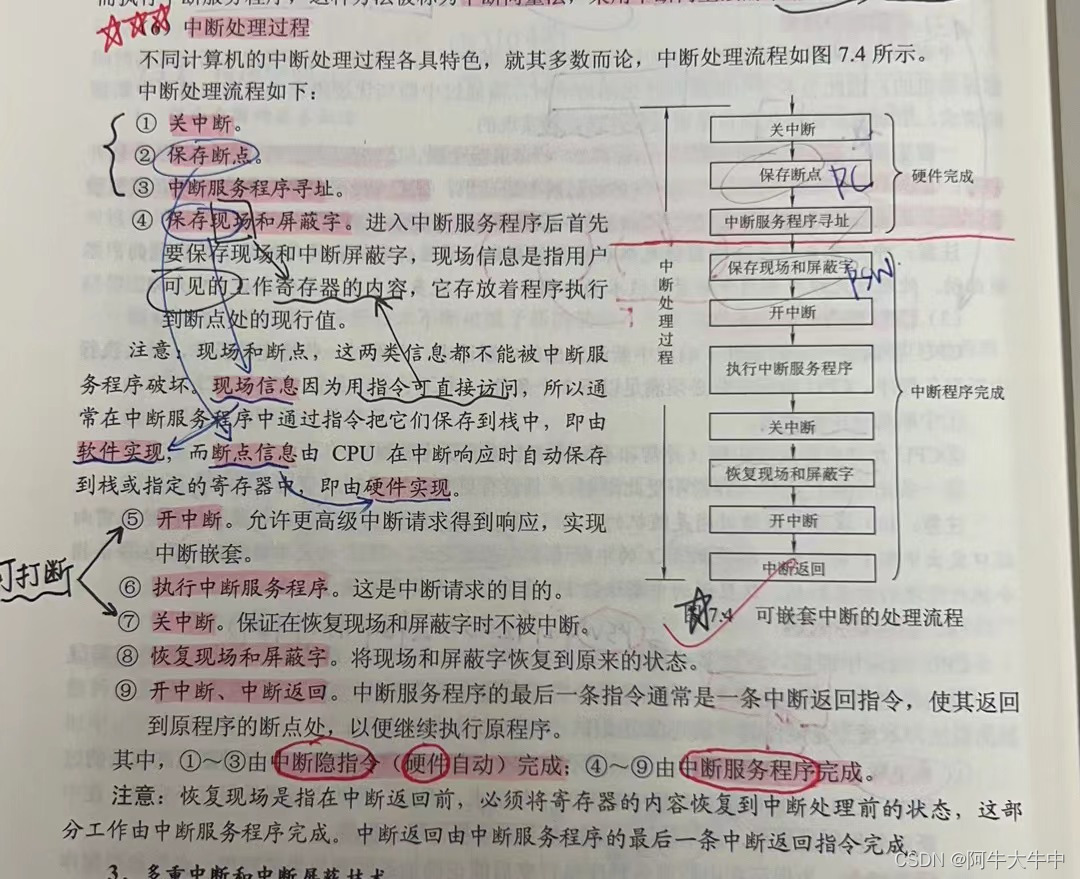 中断处理过程
不同计算机的中断处理过程各具特色，就其多数而论，中断处理流程如图 7.4 所示。
中断处理流程如下：
① 关中断。
② 保存断点。
③ 中断服务程序寻址。
④ 保存现场和屏蔽字。进入中断服务程序后首先
要保存现场和中断屏蔽字，现场信息是指用户
可见的工作寄存器的内容，它存放着程序执行
到断点处的现行值。
注意：现场和断点，这两类信息都不能被中断服
务程序破坏。现场信息因为用指令可直接访问，所以通
常在中断服务程序中通过指令把它们保存到栈中，即由
软件实现；而断点信息由 CPU 在中断响应时自动保存
到栈或指定的寄存器中，即由硬件实现。
关中断
保存断点
PC
中断服务程序寻址
硬件完成
保存现场和屏蔽字
PSW
开中断
执行中断服务程序
关中断
恢复现场和屏蔽字
开中断
中断返回
中断处理过程
中断程序完成
7.4 可嵌套中断的处理流程
可打断
⑤ 开中断。允许更高级中断请求得到响应，实现
中断嵌套。
⑥ 执行中断服务程序。这是中断请求的目的。
⑦ 关中断。保证在恢复现场和屏蔽字时不被中断。
⑧ 恢复现场和屏蔽字。将现场和屏蔽字恢复到原来的状态。
⑨ 开中断、中断返回。中断服务程序的最后一条指令通常是一条中断返回指令，使其返回
到原程序的断点处，以便继续执行原程序。
其中，①～③由中断隐指令（硬件自动）完成；④～⑨由中断服务程序完成。
注意：恢复现场是指在中断返回前，必须将寄存器的内容恢复到中断处理前的状态，这部
分工作由中断服务程序完成。中断返回由中断服务程序的最后一条中断返回指令完成。
3．多重中断和中断屏蔽技术
CSDN @阿牛大牛中